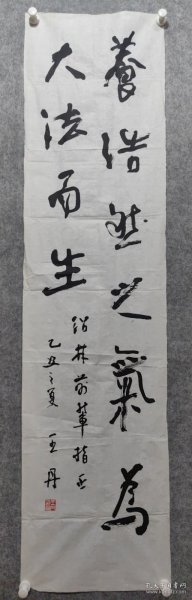 養浩然之氣為
大法而生
韶林前輩指正
乙丑之夏 王丹